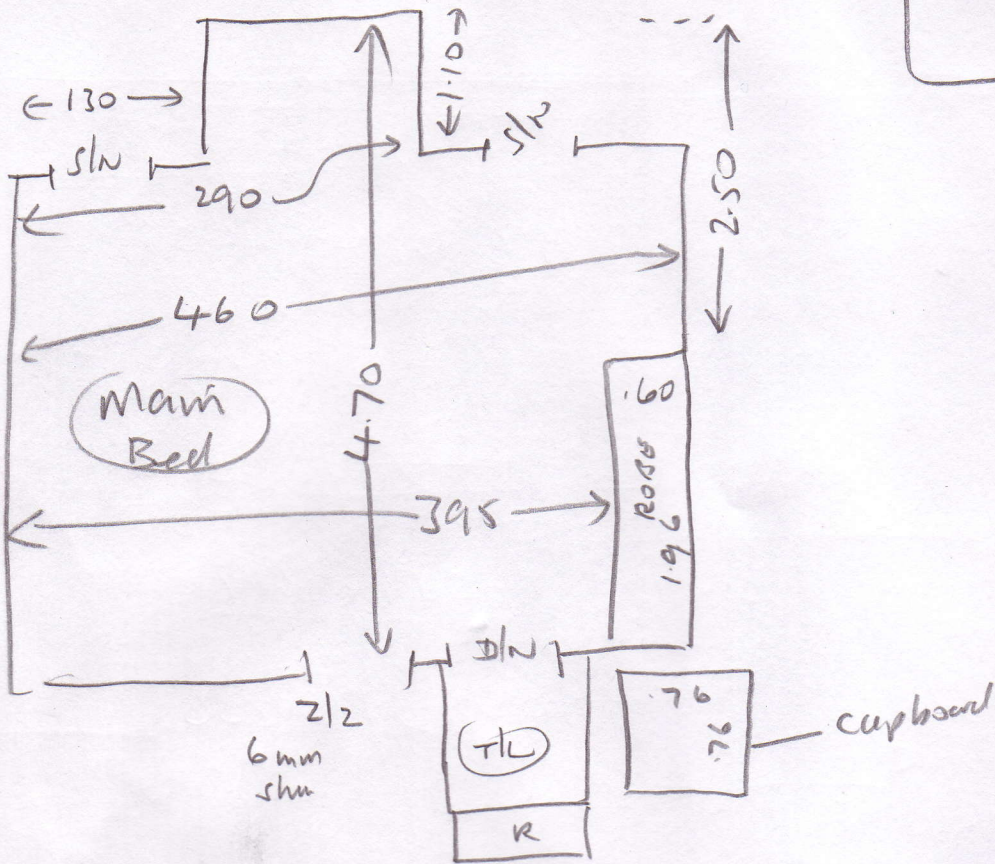 130
1.10
S/N
S/N
290
2.50
460
Main
Bed
4.70
.60
ROBE
1.96
395
D/N
Z/Z
6mm
T/L
R
.76
.76
cupboard